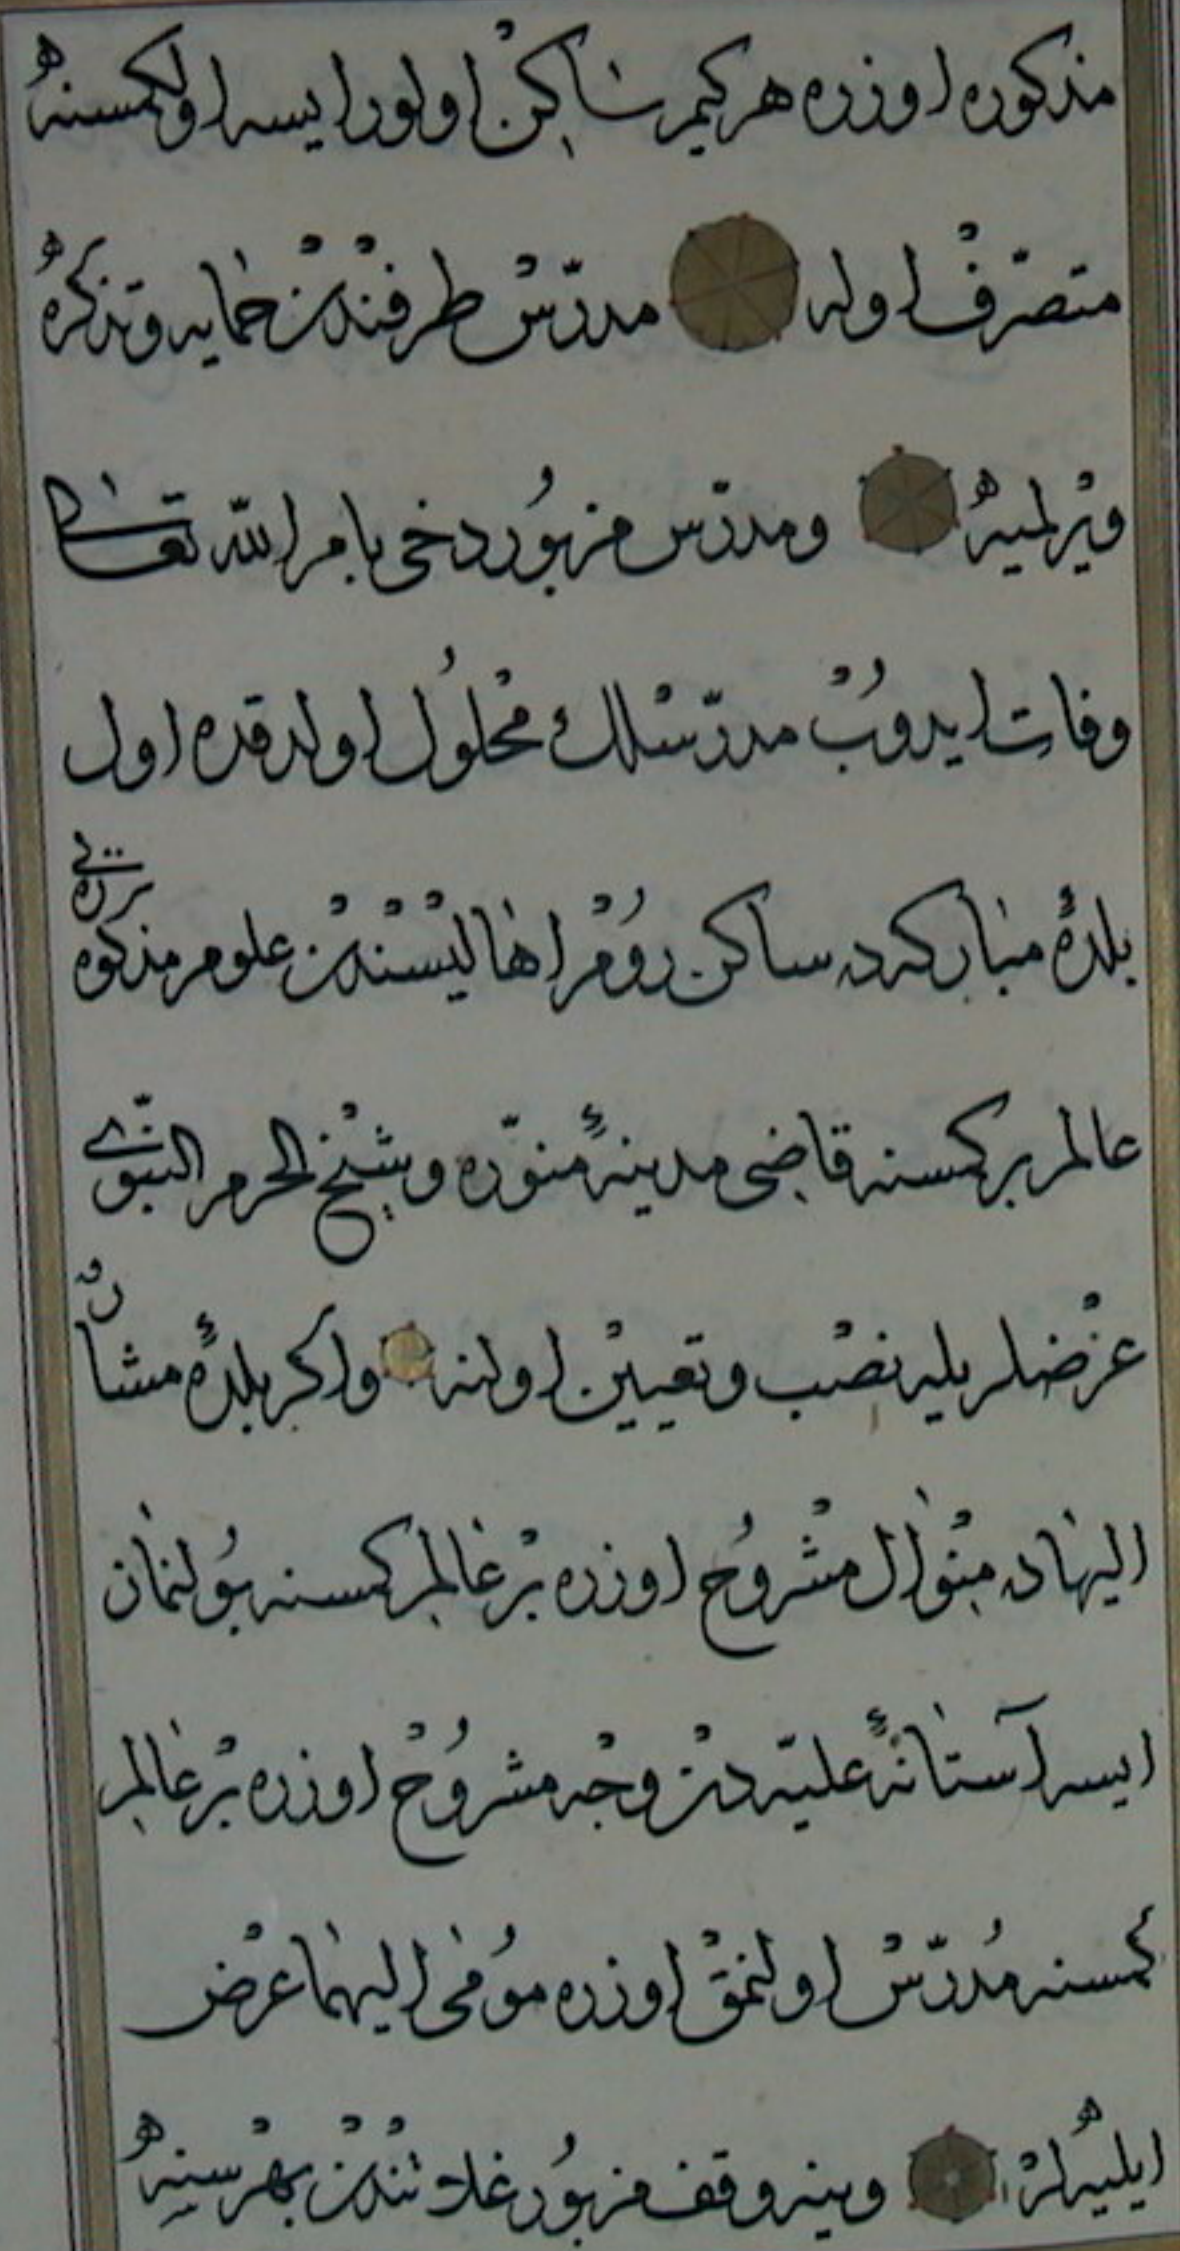 مذكوره اوزره هر كيم ساكن اولور ايسه اولكمسنه
متصرف اوله مدرّس طرفندن حمايه و تذكره
ويرلميه ومدرّس مزبور دخى بامر الله تعالى
وفات ايدوب مدرّسلك محلول اولدقده اول
بلدۀ مباركه ده ساكن روم اهاليسندن علوم مذكوره ده
عالم بر كمسنه قاضى مدينۀ منوّره و شيخ الحرم النبوى
عرضلريله نصب و تعيين اولنه واكر بلدۀ مشار
اليهاده منوال مشروح اوزره بر عالم كمسنه بولنمان
ايسه آستانۀ عليّه دن وجه مشروح اوزره بر عالم
كمسنه مدرّس اولنمق اوزره مومى اليهما عرض
ايليه لر وينه وقف مزبور غلاتندن بهر سنه